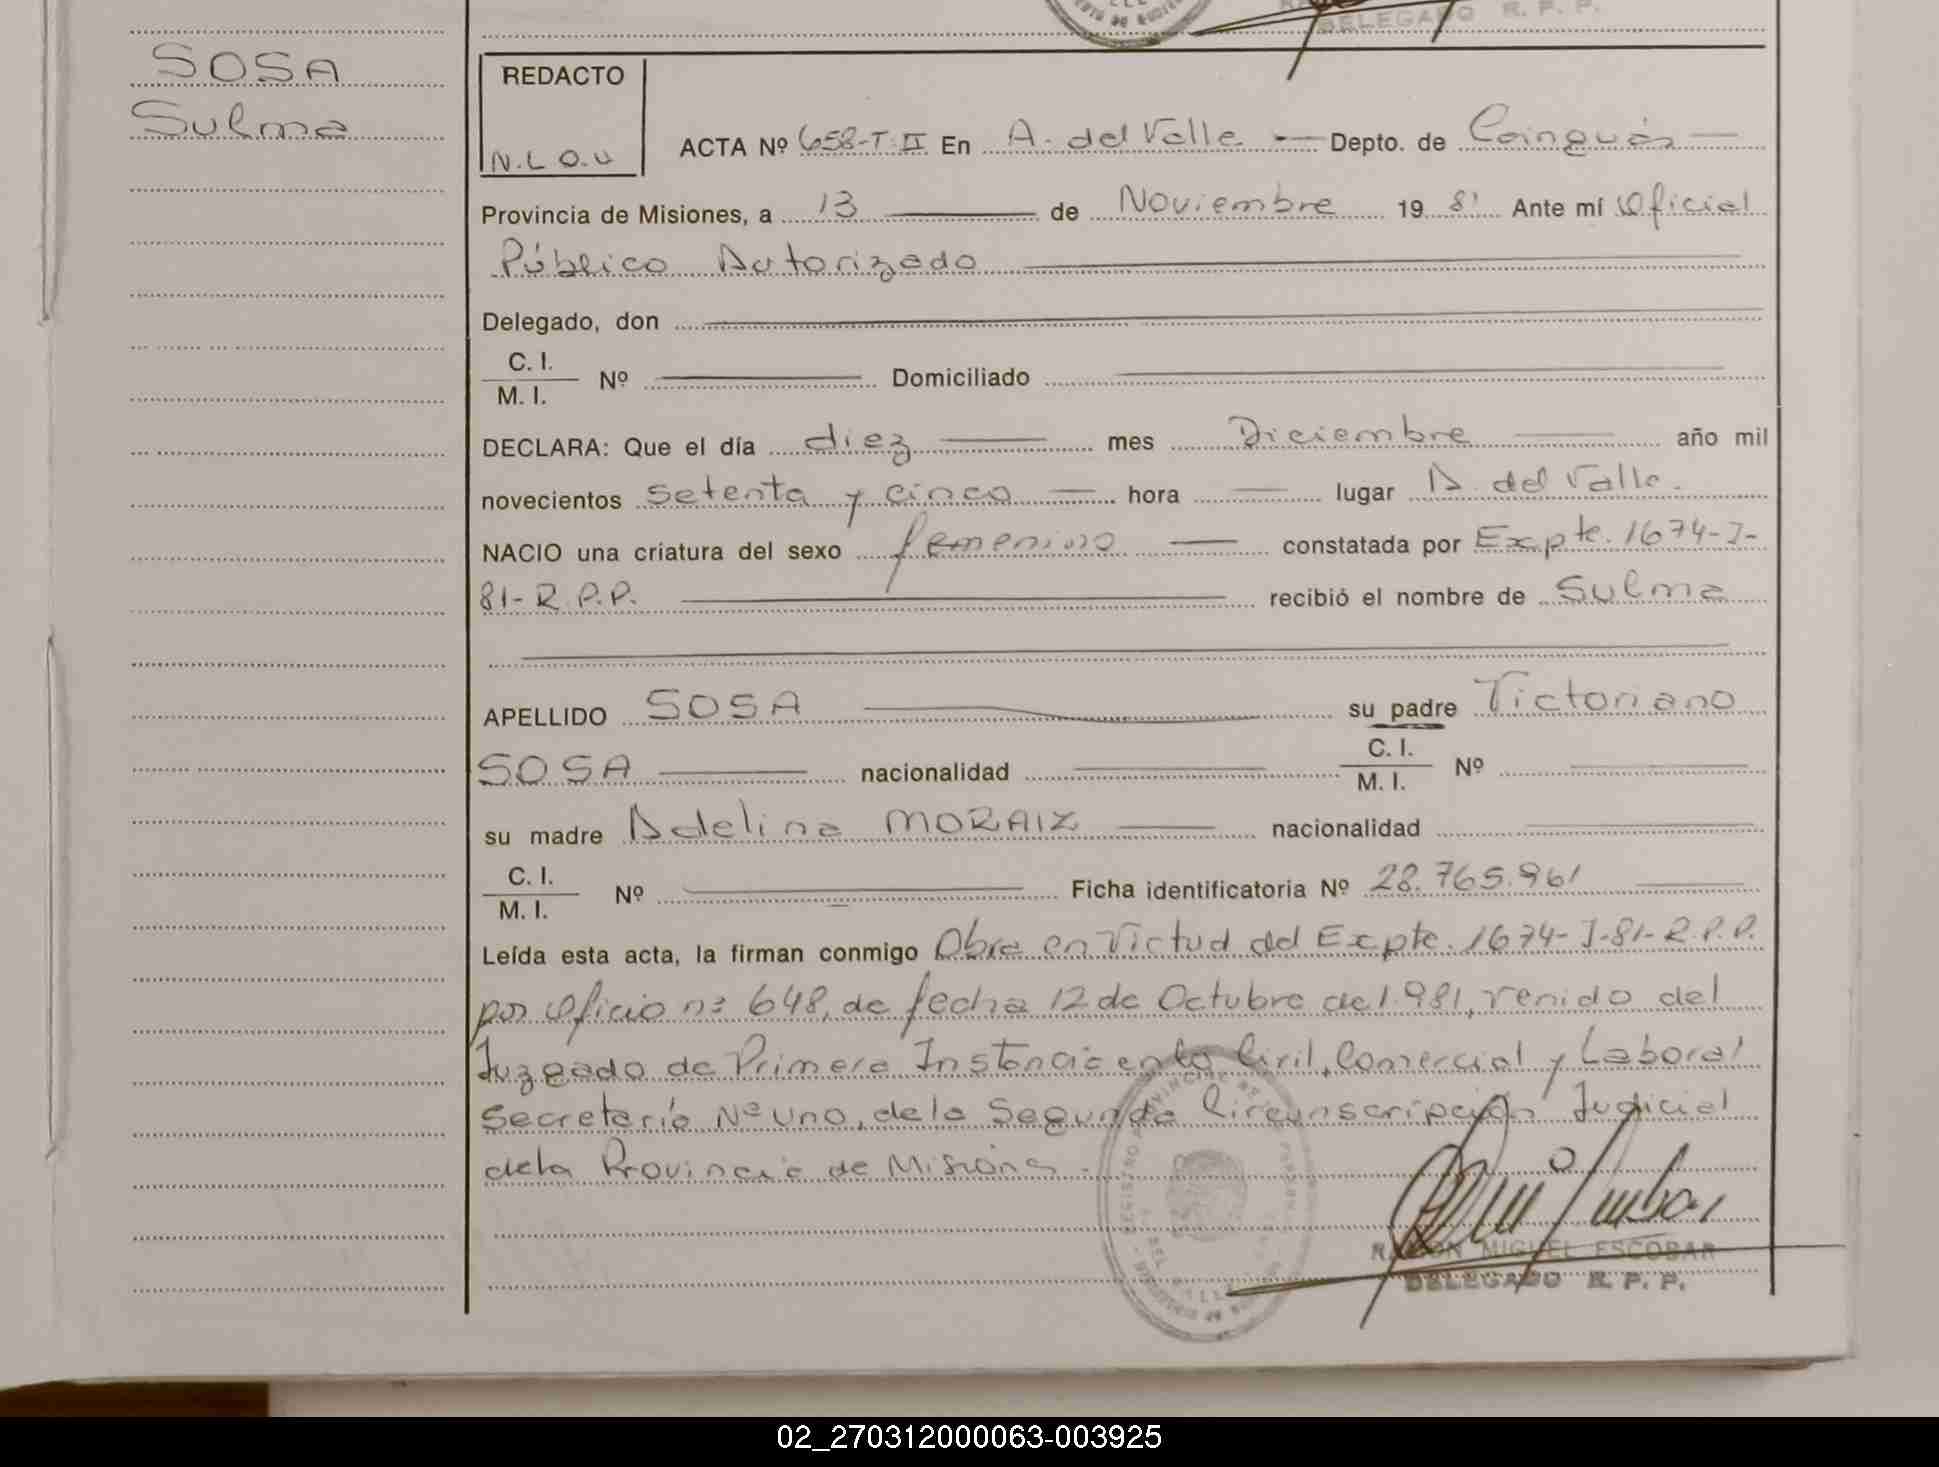 DELEGADO R. P. P.
SOSA
Sulma
REDACTO
N.L.O.U
ACTA Nº 658-T-II En A. del Valle Depto. de Cainguás
Provincia de Misiones, a 13 de Noviembre 19 81 Ante mí Oficial
Público Autorizado
Delegado, don
C. I.
M. I. Nº Domiciliado
DECLARA: Que el día diez mes Diciembre año mil
novecientos setenta y cinco hora lugar A. del Valle.
NACIO una criatura del sexo femenino constatada por Expte. 1674-J-
81-R.P.P. recibió el nombre de Sulma
APELLIDO SOSA su padre Victoriano
SOSA nacionalidad C. I. M. I. Nº
su madre Adelina MORAIZ nacionalidad
C. I.
M. I. Nº Ficha identificatoria Nº 28.765.961
Leída esta acta, la firman conmigo Obra en Victud del Expte. 1674-J-81-R.P.P.
por Oficio nº 648, de fecha 12 de Octubre de 1.981, venido del
Juzgado de Primera Instancia en lo Civil, Comercial y Laboral
Secretaría Nº uno, de la Segunda Circunscripción Judicial
de la Provincia de Misiones.
RAMON MIGUEL ESCOBAR
DELEGADO R. P. P.
02_270312000063-003925